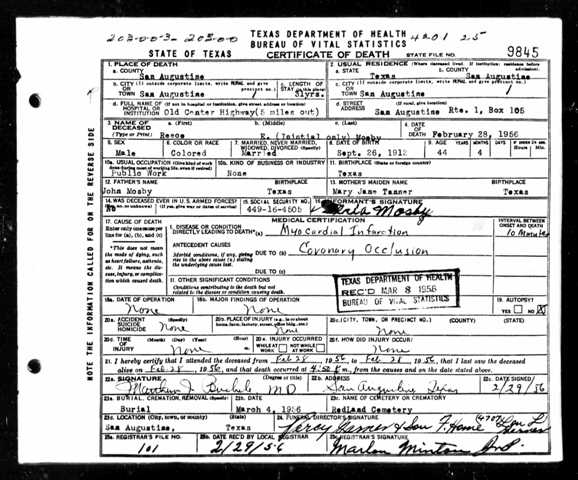 203-00-3-203-00
TEXAS DEPARTMENT OF HEALTH
4201 25
BUREAU OF VITAL STATISTICS
STATE OF TEXAS
CERTIFICATE OF DEATH
STATE FILE NO. 9845
1. PLACE OF DEATH
a. COUNTY
San Augustine
2. USUAL RESIDENCE (Where deceased lived. If institution: residence before admission).
a. STATE
Texas
b. COUNTY
San Augustine
b. CITY (If outside corporate limits, write RURAL and give precinct no.)
OR
TOWN San Augustine
c. LENGTH OF STAY
31yrs.
c. CITY (If outside corporate limits, write RURAL and give precinct no.)
OR
TOWN San Augustine
1
d. FULL NAME OF (If not in hospital or institution, give street address or location)
HOSPITAL OR
INSTITUTION Old Center Highway(5 miles out)
d. STREET
ADDRESS
(If rural, give location)
San Augustine Rte. 1, Box 105
3. NAME OF
DECEASED
a. (First)
Resce
b. (Middle)
E. (Initial only)
c. (Last)
Mosby
4. DATE
OF
DEATH February 28, 1956
5. SEX
Male
6. COLOR OR RACE
Colored
7. MARRIED, NEVER MARRIED,
WIDOWED, DIVORCED (Specify)
Married
8. DATE OF BIRTH
Sept. 26, 1912
9. AGE YEARS
44
MONTHS
4
DAYS
10a. USUAL OCCUPATION
Public Work
10b. KIND OF BUSINESS OR INDUSTRY
None
11. BIRTHPLACE (State or foreign country)
Texas
12. FATHER'S NAME
John Mosby
BIRTHPLACE
Texas
13. MOTHER'S MAIDEN NAME
Mary Jane Tanner
BIRTHPLACE
Texas
14. WAS DECEASED EVER IN U.S. ARMED FORCES?
15. SOCIAL SECURITY NO.
449-16-4605
16. INFORMANT'S SIGNATURE
Mosby
17. CAUSE OF DEATH
Enter only one cause per
line for (a), (b), and (c)
MEDICAL CERTIFICATION
INTERVAL BETWEEN
ONSET AND DEATH
I. DISEASE OR CONDITION
DIRECTLY LEADING TO DEATH*(a) Myocardial Infarction
10 Minutes
*This does not mean
the mode of dying, such
as heart failure, asthenia,
etc. It means the disease,
injury, or complication
which caused death.
ANTECEDENT CAUSES
Morbid conditions, if any, giving
rise to the above cause (a) stating
the underlying cause last.
DUE TO (b) Coronary Occlusion
DUE TO (c)
II. OTHER SIGNIFICANT CONDITIONS
Conditions contributing to the death but not
related to the disease or condition causing death.
TEXAS DEPARTMENT OF HEALTH
REC'D MAR 8 1956
BUREAU OF VITAL STATISTICS
18a. DATE OF OPERATION
None
18b. MAJOR FINDINGS OF OPERATION
None
19. AUTOPSY?
YES NO X
20a. ACCIDENT
SUICIDE
HOMICIDE
(Specify)
None
20b. PLACE OF INJURY (e.g., in or about
home, farm, factory, street, office bldg., etc.)
None
20c. (CITY, TOWN, OR PRECINCT NO.)
(COUNTY)
(STATE)
None
20d. TIME
OF
INJURY
(Month) (Day) (Year) (Hour)
None
20e. INJURY OCCURRED
WHILE AT WORK NOT WHILE AT WORK
20f. HOW DID INJURY OCCUR?
None
21. I hereby certify that I attended the deceased from Feb 28, 1956, to Feb 28, 1956, that I last saw the deceased
alive on Feb 28, 1956, and that death occurred at m., from the causes and on the date stated above.
22a. SIGNATURE
(Degree or title)
M D
22b. ADDRESS
San Augustine Texas
22c. DATE SIGNED
2/29/56
23a. BURIAL, CREMATION, REMOVAL (Specify)
Burial
23b. DATE
March 4, 1956
23c. NAME OF CEMETERY OR CREMATORY
Redland Cemetery
23d. LOCATION (City, town, or county) (State)
San Augustine, Texas
24. FUNERAL DIRECTOR'S SIGNATURE
Percy & Son F. Home
25a. REGISTRAR'S FILE NO.
101
25b. DATE REC'D BY LOCAL REGISTRAR
2/29/56
25c. REGISTRAR'S SIGNATURE
Marlon Minton
NOTE THE INFORMATION CALLED FOR ON THE REVERSE SIDE